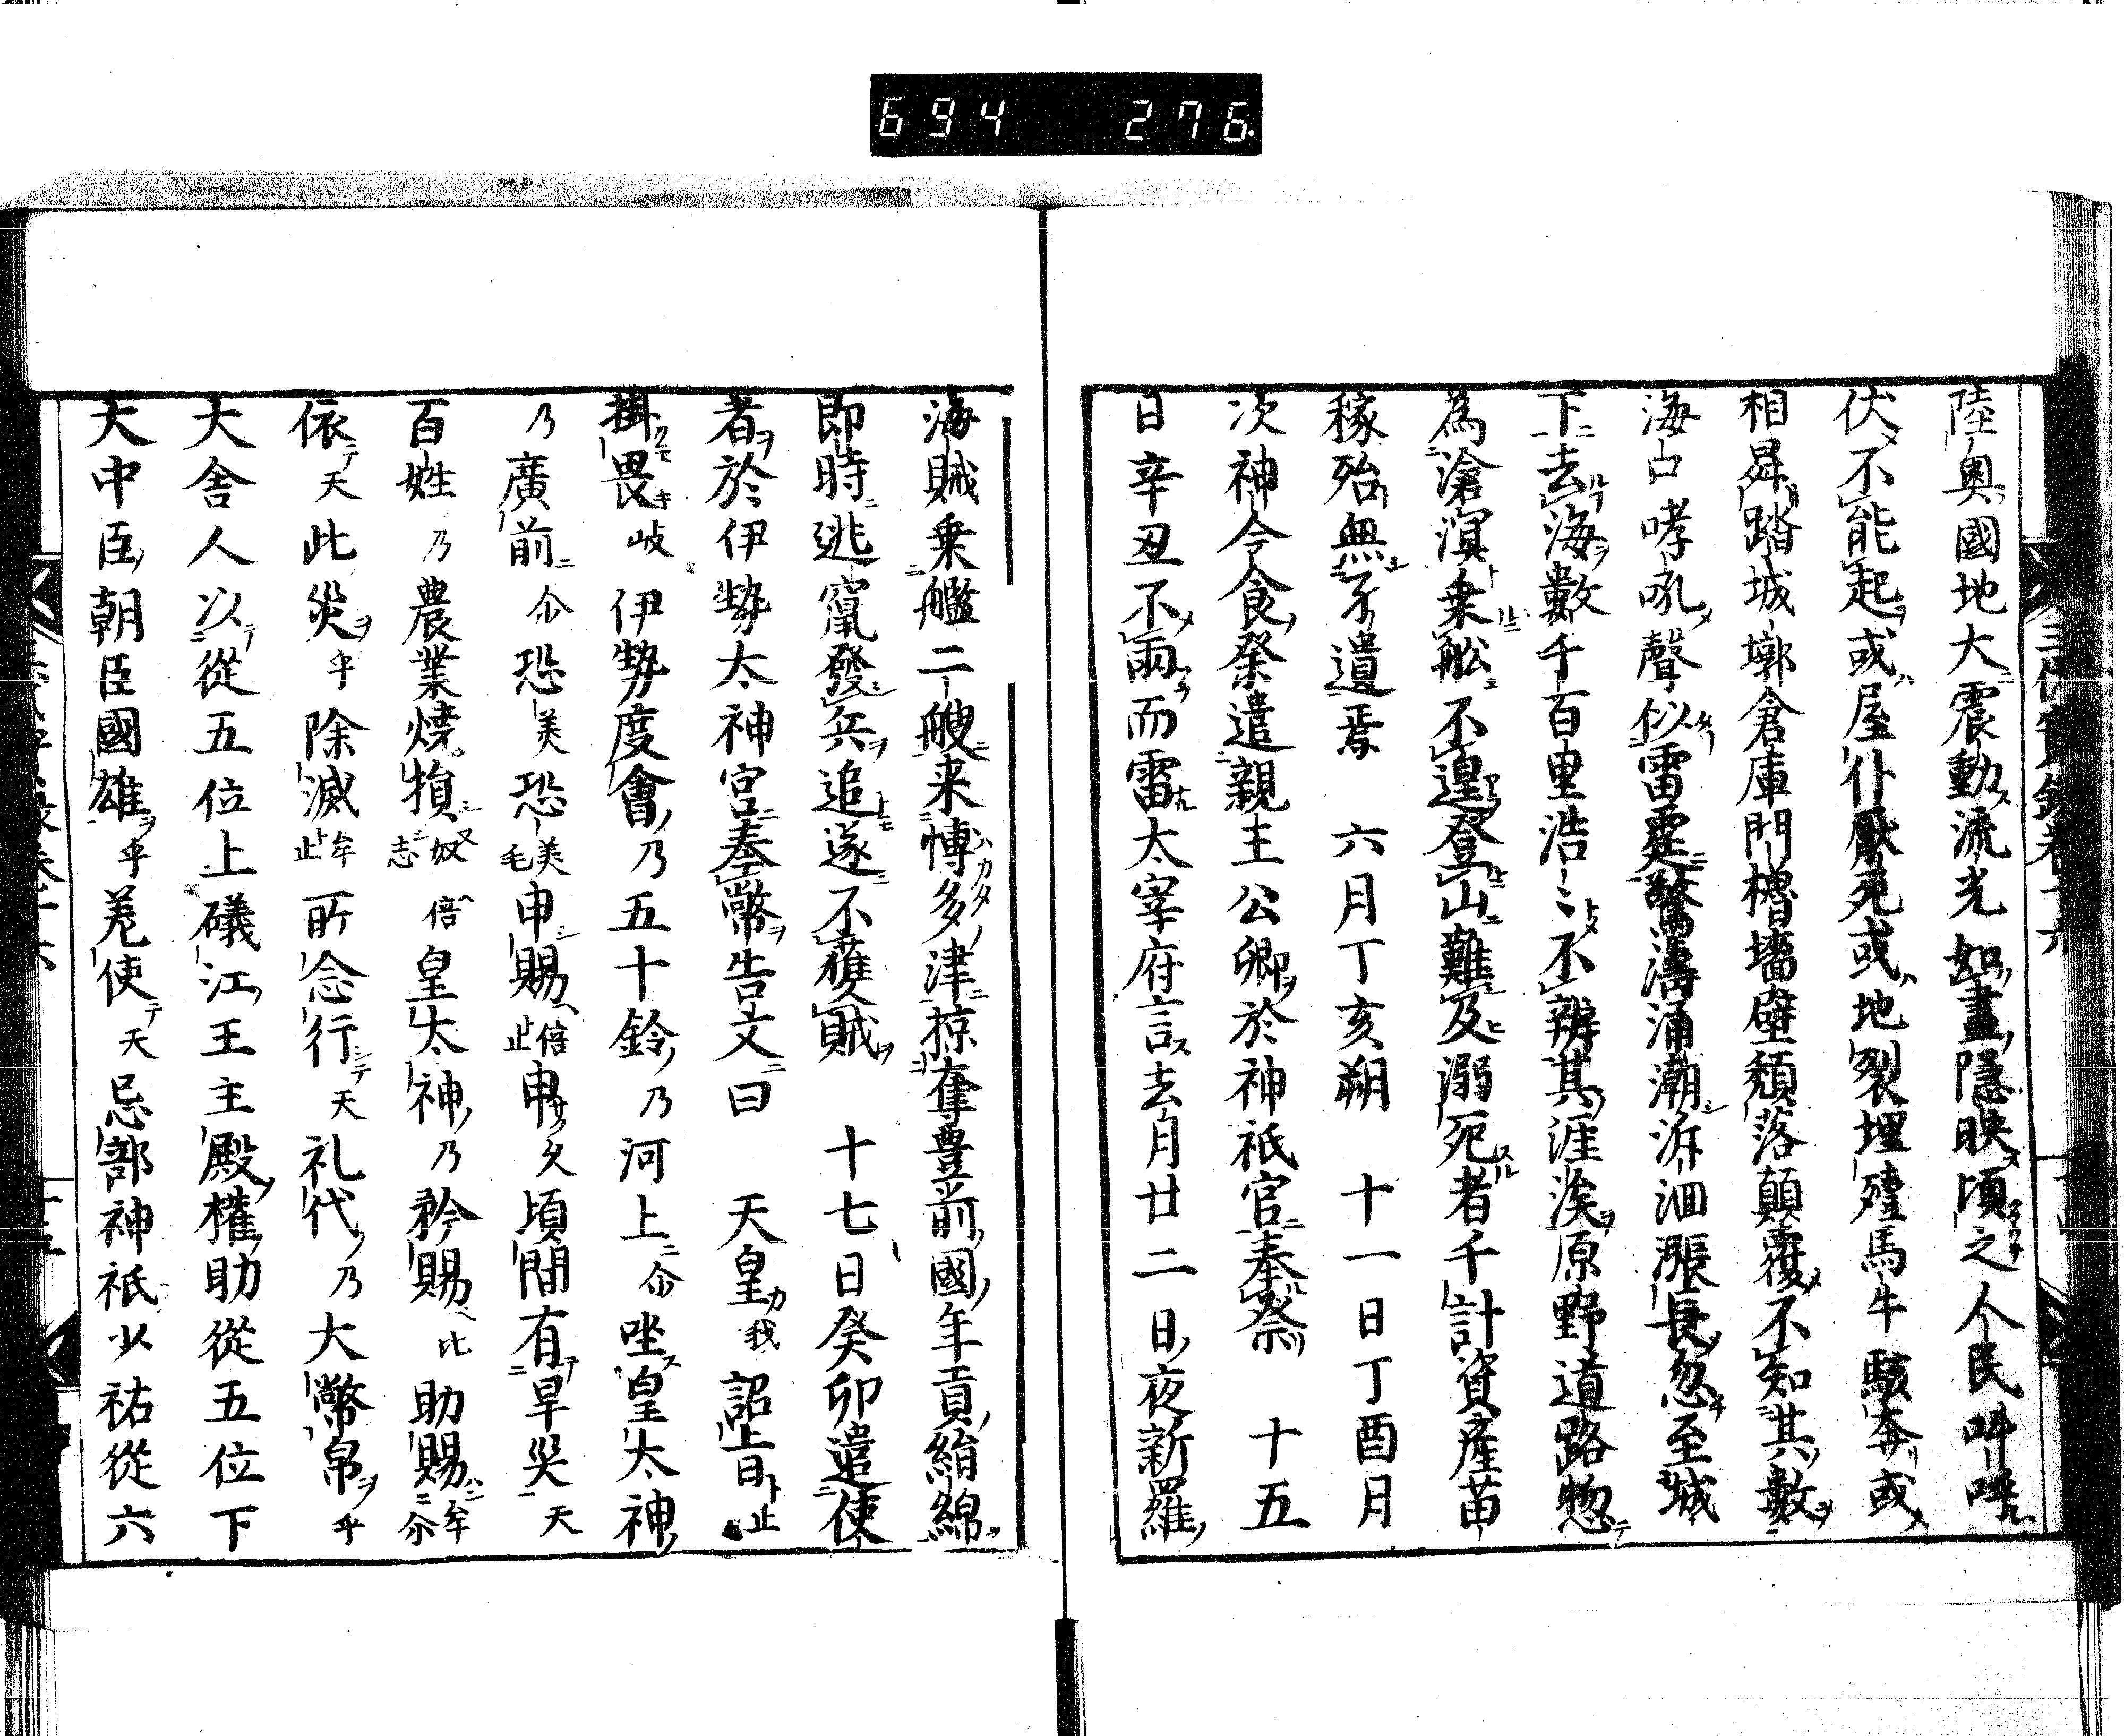 694 276.
陸奥國地大震動流光如晝隱映頃之人民呌呼
伏不能起或屋仆壓死或地裂埋殪馬牛駭奔或
相昇踏城墎倉庫門櫓墻壁頽落顛覆不知其數
海口哮吼聲似雷霆驚濤涌潮泝洄漲長忽至城
下去海數千百里浩〻不辨其涯涘原野道路惣
為滄溟乗舩不遑登山難及溺死者千計資産苗
稼殆無孑遺焉 六月丁亥朔 十一日丁酉月
次神今食祭遣親王公卿於神祇官奉祭 十五
日辛丑不雨而雷太宰府言去月廿二日夜新羅
海賊乗艦二艘来博多津掠奪豊前國年貢絹綿
即時逃竄發兵追遂不獲賊 十七日癸卯遣使
者於伊勢太神宮奉幣告文曰 天皇我詔旨止
掛畏岐伊勢度會乃五十鈴乃河上尒坐皇太神
乃廣前尒恐美恐美毛申賜倍止申久頃間有旱災天
百姓乃農業焼損奴倍志皇太神乃矜賜比助賜牟尒
依天此災乎除滅牟止所念行天礼代乃大幣帛乎
大舎人以從五位上礒江王主殿權助從五位下
大中臣朝臣國雄乎差使天忌部神祇少祐從六